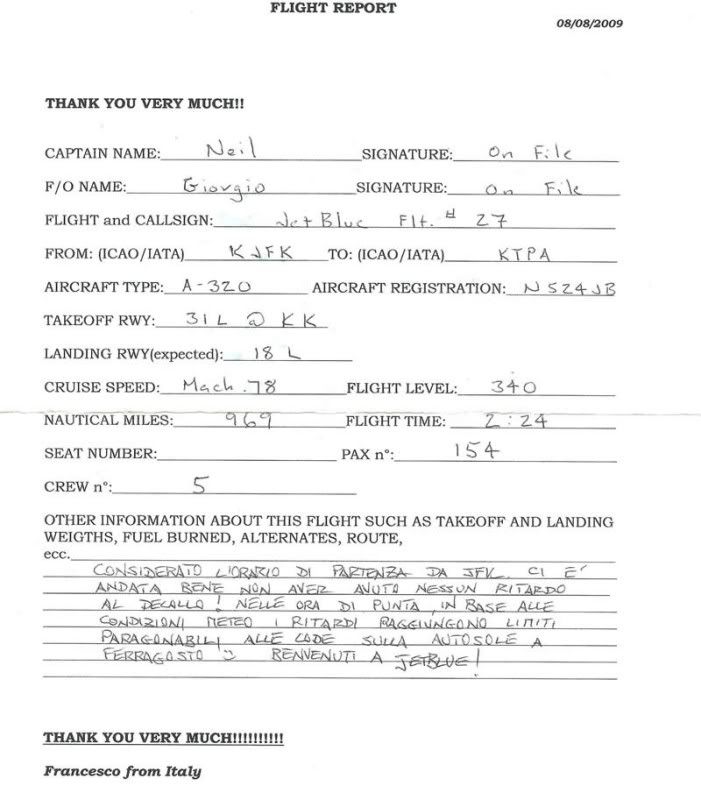 FLIGHT REPORT
08/08/2009
THANK YOU VERY MUCH!!
CAPTAIN NAME: Neil SIGNATURE: On File
F/O NAME: Giorgio SIGNATURE: On File
FLIGHT and CALLSIGN: JetBlue Flt. # 27
FROM: (ICAO/IATA) KJFK TO: (ICAO/IATA) KTPA
AIRCRAFT TYPE: A-320 AIRCRAFT REGISTRATION: N524JB
TAKEOFF RWY: 31 L @ KK
LANDING RWY(expected): 18 L
CRUISE SPEED: Mach .78 FLIGHT LEVEL: 340
NAUTICAL MILES: 969 FLIGHT TIME: 2:24
SEAT NUMBER: PAX n°: 154
CREW n°: 5
OTHER INFORMATION ABOUT THIS FLIGHT SUCH AS TAKEOFF AND LANDING
WEIGTHS, FUEL BURNED, ALTERNATES, ROUTE,
ecc.
CONSIDERATO L'ORARIO DI PARTENZA DA JFK CI E'
ANDATA BENE NON AVER AVUTO NESSUN RITARDO
AL DECOLLO! NELLE ORA DI PUNTA, IN BASE ALLE
CONDIZIONI METEO I RITARDI RAGGIUNGONO LIMITI
PARAGONABILI ALLE CODE SULLA AUTOSOLE A
FERRAGOSTO BENVENUTI A JETBLUE!
THANK YOU VERY MUCH!!!!!!!!!!
Francesco from Italy